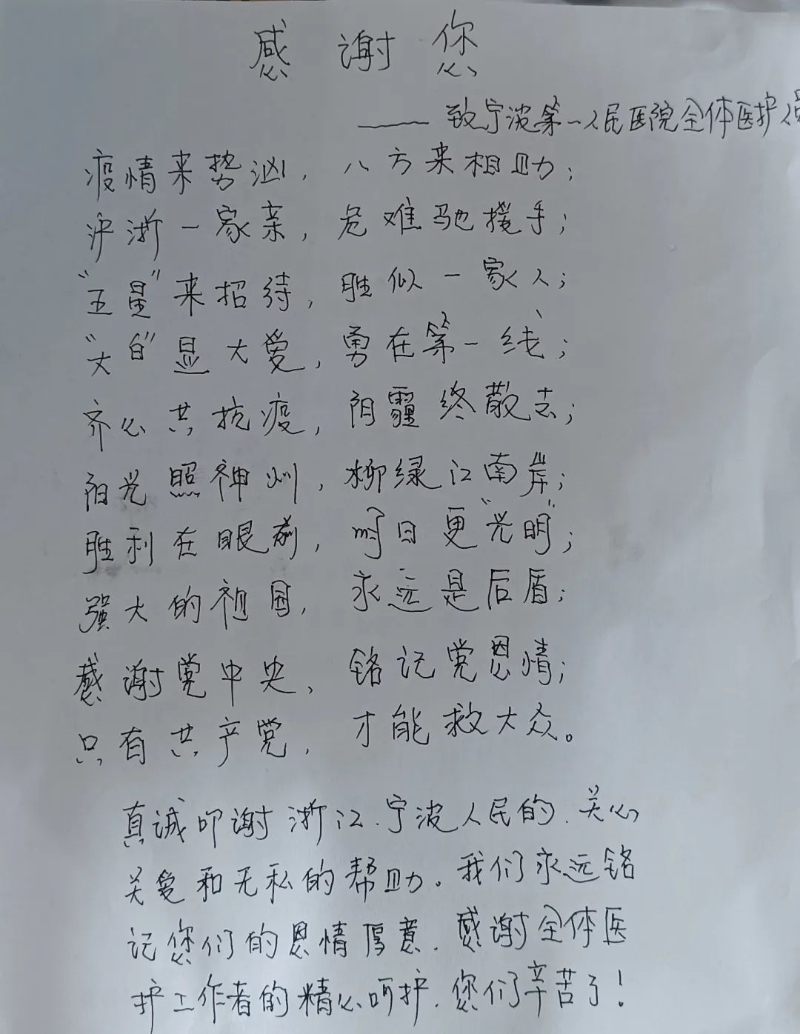 感谢您
——致宁波第一人民医院全体医护人员
疫情来势汹，八方来相助；
沪浙一家亲，危难驰援手；
“五星”来招待，胜似一家人；
“大白”显大爱，勇在第一线；
齐心共抗疫，阴霾终散去；
阳光照神州，柳绿江南岸；
胜利在眼前，明日更“光明”；
强大的祖国，永远是后盾；
感谢党中央，铭记党恩情；
只有共产党，才能救大众。
真诚叩谢浙江、宁波人民的、关心
关爱和无私的帮助。我们永远铭
记您们的恩情厚意，感谢全体医
护工作者的精心呵护，您们辛苦了！